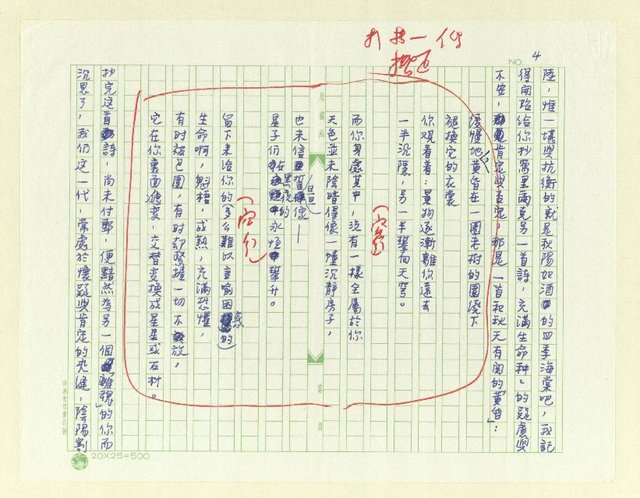 NO. 4
陸，惟一堪與抗衡的就是秋陽如酒的四季海棠吧，我記
得開始給你抄寫里爾克另一首詩，充滿生命種々的疑慮與
不安，肯定與否定，那是一首和秋天有關的「黃昏」：
緩慢地黃昏在一圈老樹的圍繞下
替換它的衣裳
你觀看着：景物逐漸離你遠去
一半沉隱，另一半舉向天空。
（空行）
而你身處其中，沒有一樣全屬於你
天色並未陰暗得像一幢沉靜房子，
也未信誓旦旦像—
星子們在黑夜的永恆舉升。
（空行）
留下來給你的（多麼難以言喻困惑的）
生命啊，魁梧，成熟，充滿恐懼，
有時被包圍，有時卻緊握一切不放，
它在你裏面遞變，交替變換成星星或石材。
抄完這首詩，尚未付郵，便黯然為另一個離眾的你而
沉思了，我們這一代，常處於懷疑與肯定的
20X25=500